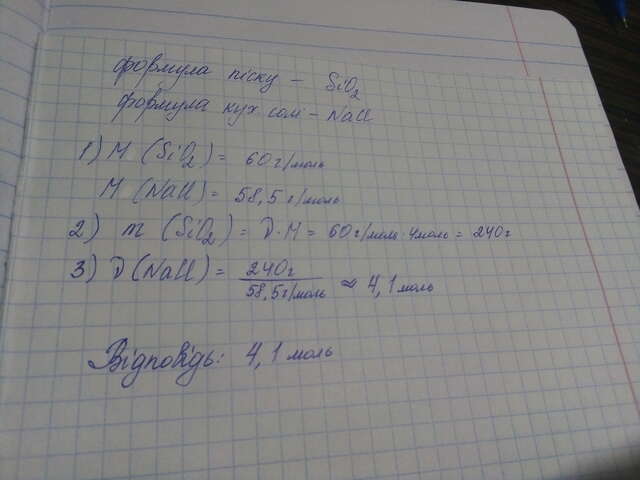 формула піску – SiO2
формула кух. солі – NaCl
1) M (SiO2) = 60 г/моль
M (NaCl) = 58,5 г/моль
2) m (SiO2) = D·M = 60 г/моль·4моль = 240г
3) D (NaCl) = 240г / 58,5г/моль ≈ 4,1 моль
Відповідь: 4,1 моль